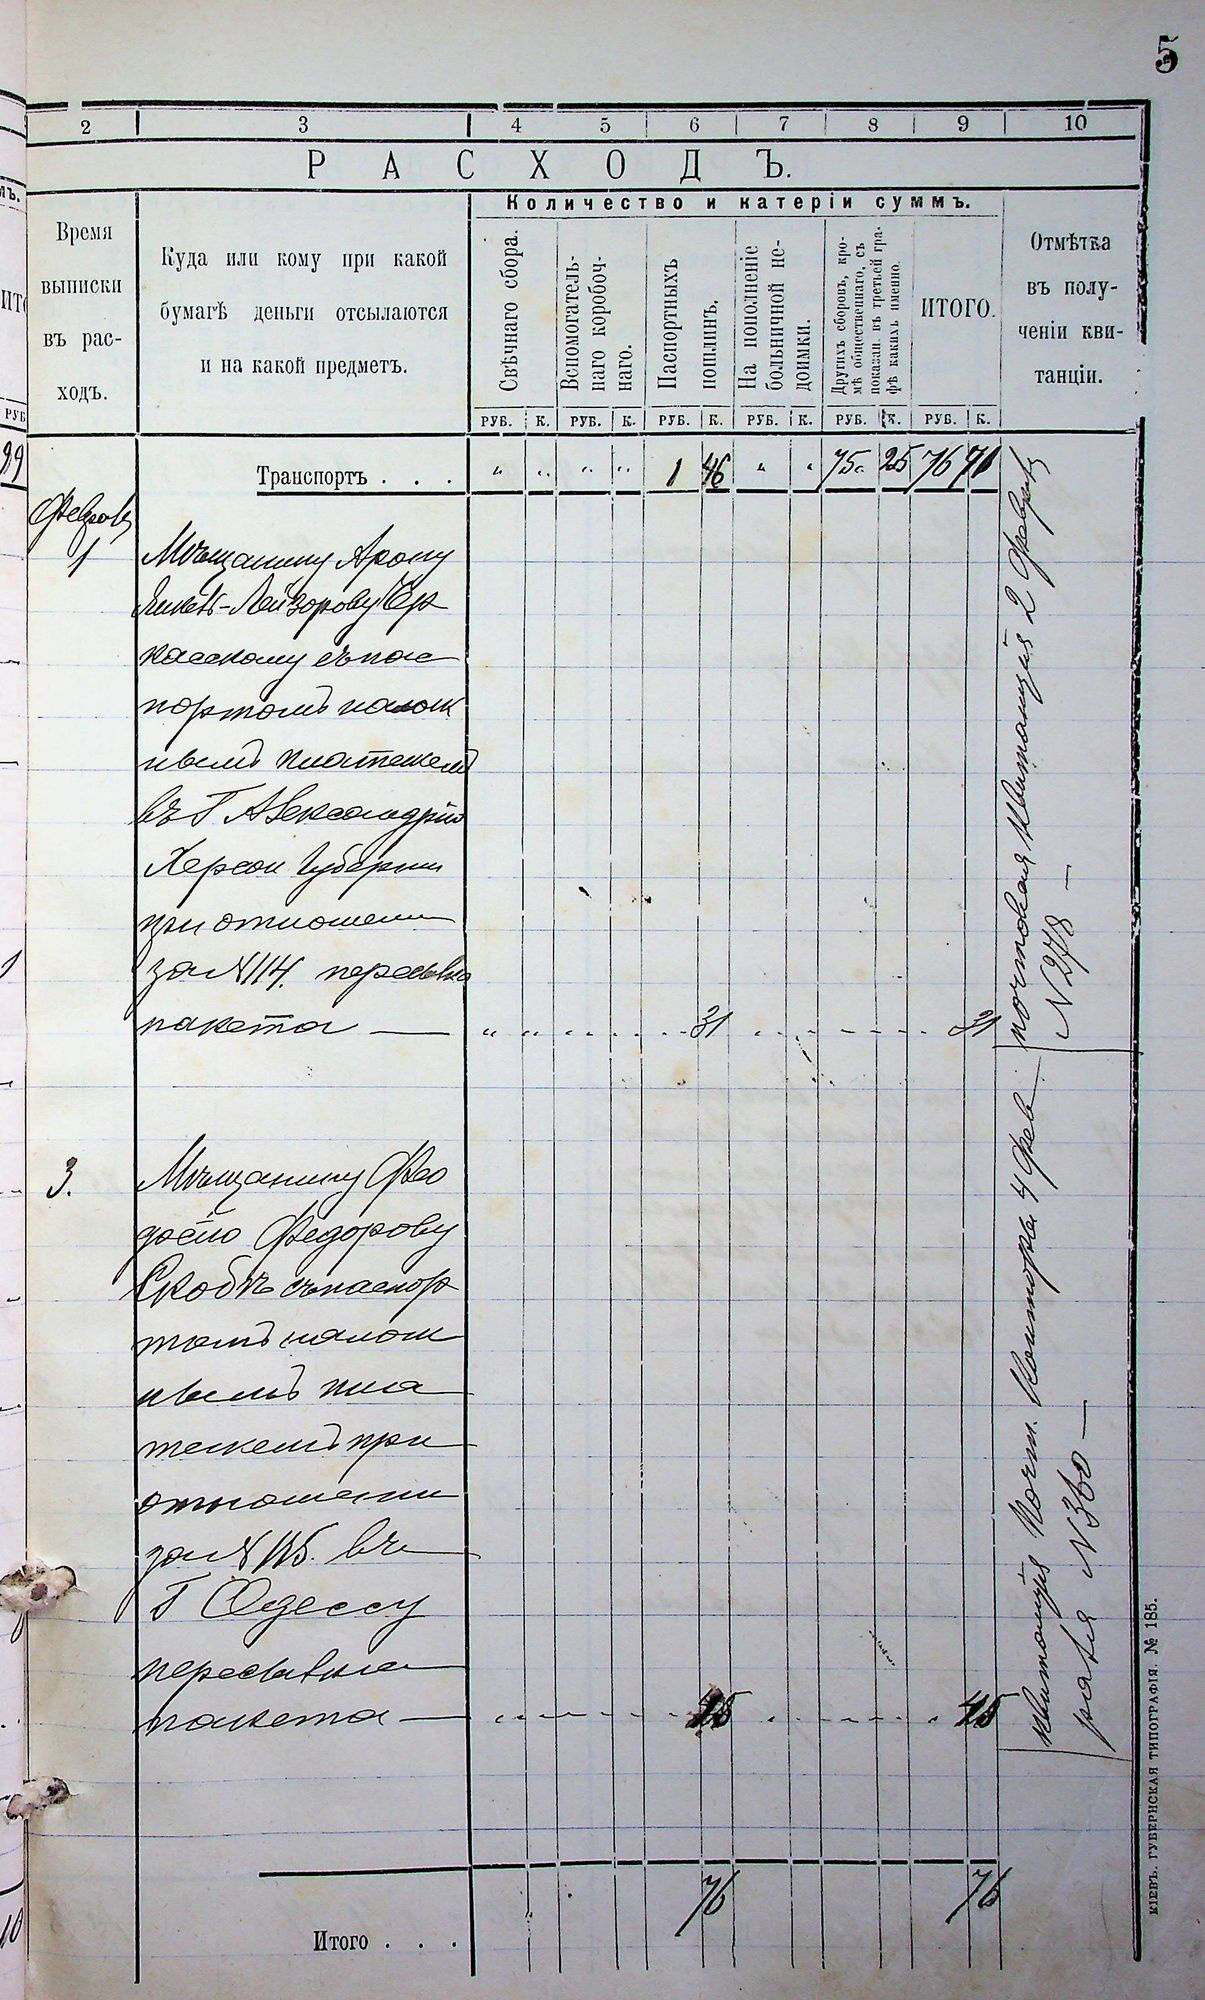 5
2 3 4 5 6 7 8 9 10
РАСХОДЪ.
Время
выписки
въ рас-
ходъ.
Куда или кому при какой
бумагѣ деньги отсылаются
и на какой предметъ.
Количество и катеріи суммъ.
Свѣчнаго сбора.
Вспомогатель-
наго коробоч-
наго.
Паспортныхъ
пошлинъ.
На пополненіе
больничной не-
доимки.
Другихъ сборовъ, кро-
мѣ общественнаго, съ
показан. въ третьей гра-
фѣ какихъ именно.
ИТОГО.
Отмѣтка
въ полу-
ченіи кви-
танціи.
РУБ. К. РУБ. К. РУБ. К. РУБ. К. РУБ. К. РУБ. К.
Транспортъ . . . " " " " 1 46 " " 75 25 76 71
1
Мѣщанину Арону
-Лейзорову Чер
касскому съ пас
портомъ налож
нымъ платежемъ
въ Г Александрію
Херсон Губерни
при отношени
за № 114. пересылка
пакета — 31 31
почтовая квитанція 2 Февраля
№ 278 —
3.
Мѣщанину Фео
досію Федорову
Скобѣ съ паспор
томъ налож
нымъ пла
тежемъ при
отношени
за № 115. въ
Г Одессу
пересылка
пакета — 45 45
Квитанція Почт. Конторы 4 Фев
раля № 360 —
Итого . . . 76 76
КІЕВЪ. ГУБЕРНСКАЯ ТИПОГРАФІЯ. № 185.